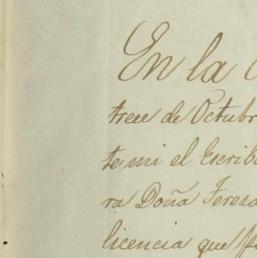 En la
trece de Octubr
te mi el Escrib
ra Doña Teresa
licencia que